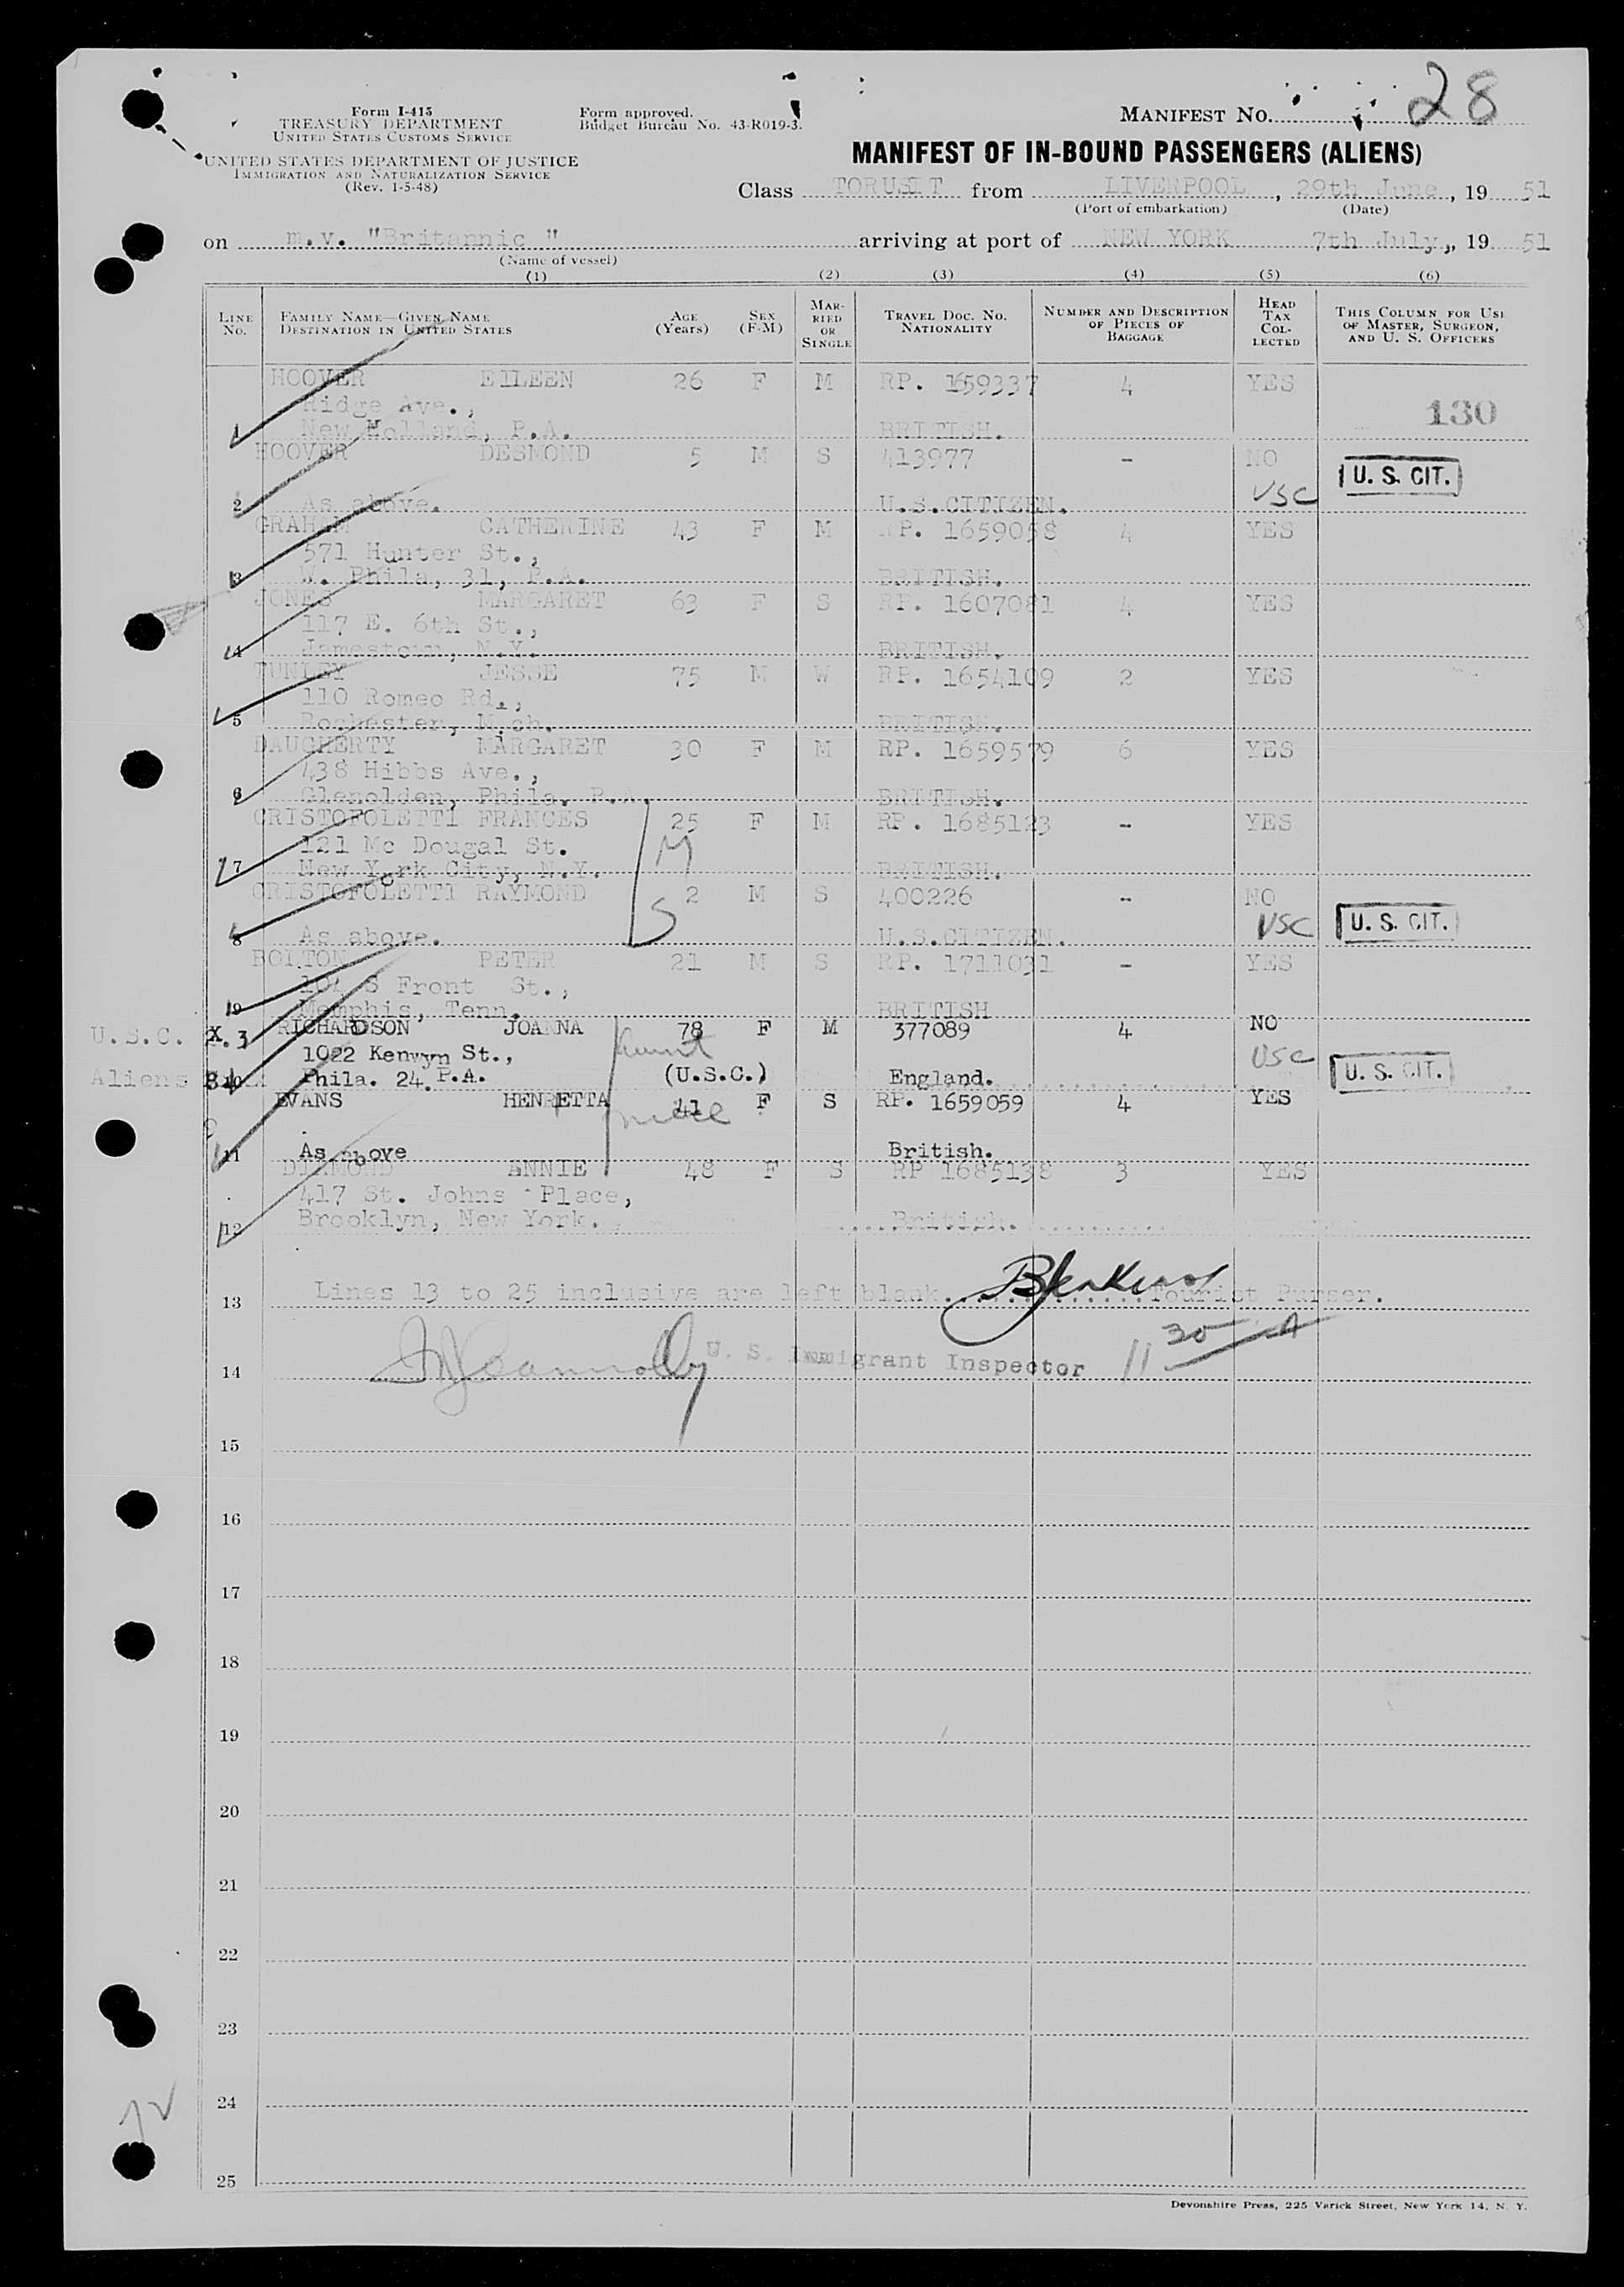 28
Form I-415
TREASURY DEPARTMENT
UNITED STATES CUSTOMS SERVICE
UNITED STATES DEPARTMENT OF JUSTICE
IMMIGRATION AND NATURALIZATION SERVICE
(Rev. 1-5-48)
Form approved.
Budget Bureau No. 43-R019-3.
MANIFEST NO.
MANIFEST OF IN-BOUND PASSENGERS (ALIENS)
Class TORUSIT from LIVERPOOL, 29th June, 19 51
(Port of embarkation) (Date)
on m.v. "Britannic " arriving at port of NEW YORK 7th July,, 19 51
(Name of vessel)
(1) (2) (3) (4) (5) (6)
LINE No. FAMILY NAME—GIVEN NAME DESTINATION IN UNITED STATES AGE (Years) SEX (F-M) MARRIED OR SINGLE TRAVEL DOC. NO. NATIONALITY NUMBER AND DESCRIPTION OF PIECES OF BAGGAGE HEAD TAX COLLECTED THIS COLUMN FOR USE OF MASTER, SURGEON, AND U. S. OFFICERS
HOOVER EILEEN 26 F M RP. 1659337 4 YES
Ridge Ave.,
130
1 New Holland, P.A. BRITISH.
HOOVER DESMOND 5 M S 413977 - NO
U. S. CIT.
USC
2 As above. U.S.CITIZEN.
GRAHAM CATHERINE 43 F M RP. 1659058 4 YES
571 Hunter St.,
3 W. Phila, 31, P.A. BRITISH.
JONES MARGARET 63 F S RP. 1607081 4 YES
117 E. 6th St.,
4 Jamestown, N.Y. BRITISH.
TUNLEY JESSE 75 M W RP. 1654109 2 YES
110 Romeo Rd.,
5 Rochester, Mich. BRITISH.
DAUGHERTY MARGARET 30 F M RP. 1659579 6 YES
438 Hibbs Ave.,
6 Glenolden, Phila. P.A. BRITISH.
CRISTOFOLETTI FRANCES 25 F M RP. 1685123 - YES
121 Mc Dougal St. M
7 New York City, N.Y. BRITISH.
CRISTOFOLETTI RAYMOND 2 M S 400226 - NO
S USC U. S. CIT.
8 As above. U.S.CITIZEN.
BOLTON PETER 21 M S RP. 1711031 - YES
101 S Front St.,
9 Memphis, Tenn. BRITISH
U.S.C. X. 3 RICHARDSON JOANNA 78 F M 377089 4 NO
1022 Kenwyn St., Aunt USC
Aliens 10 Phila. 24. P.A. (U.S.C.) England. U. S. CIT.
9 EVANS HENRETTA 41 F S RP. 1659059 4 YES
niece
11 As above British.
DIAMOND ANNIE 48 F S RP 1685138 3 YES
417 St. Johns Place,
12 Brooklyn, New York. British.
13 Lines 13 to 25 inclusive are left blank. Tourist Purser.
14 U. S. Immigrant Inspector 11 30 A
15
16
17
18
19
20
21
22
23
24
25
12
Devonshire Press, 225 Varick Street, New York 14, N. Y.